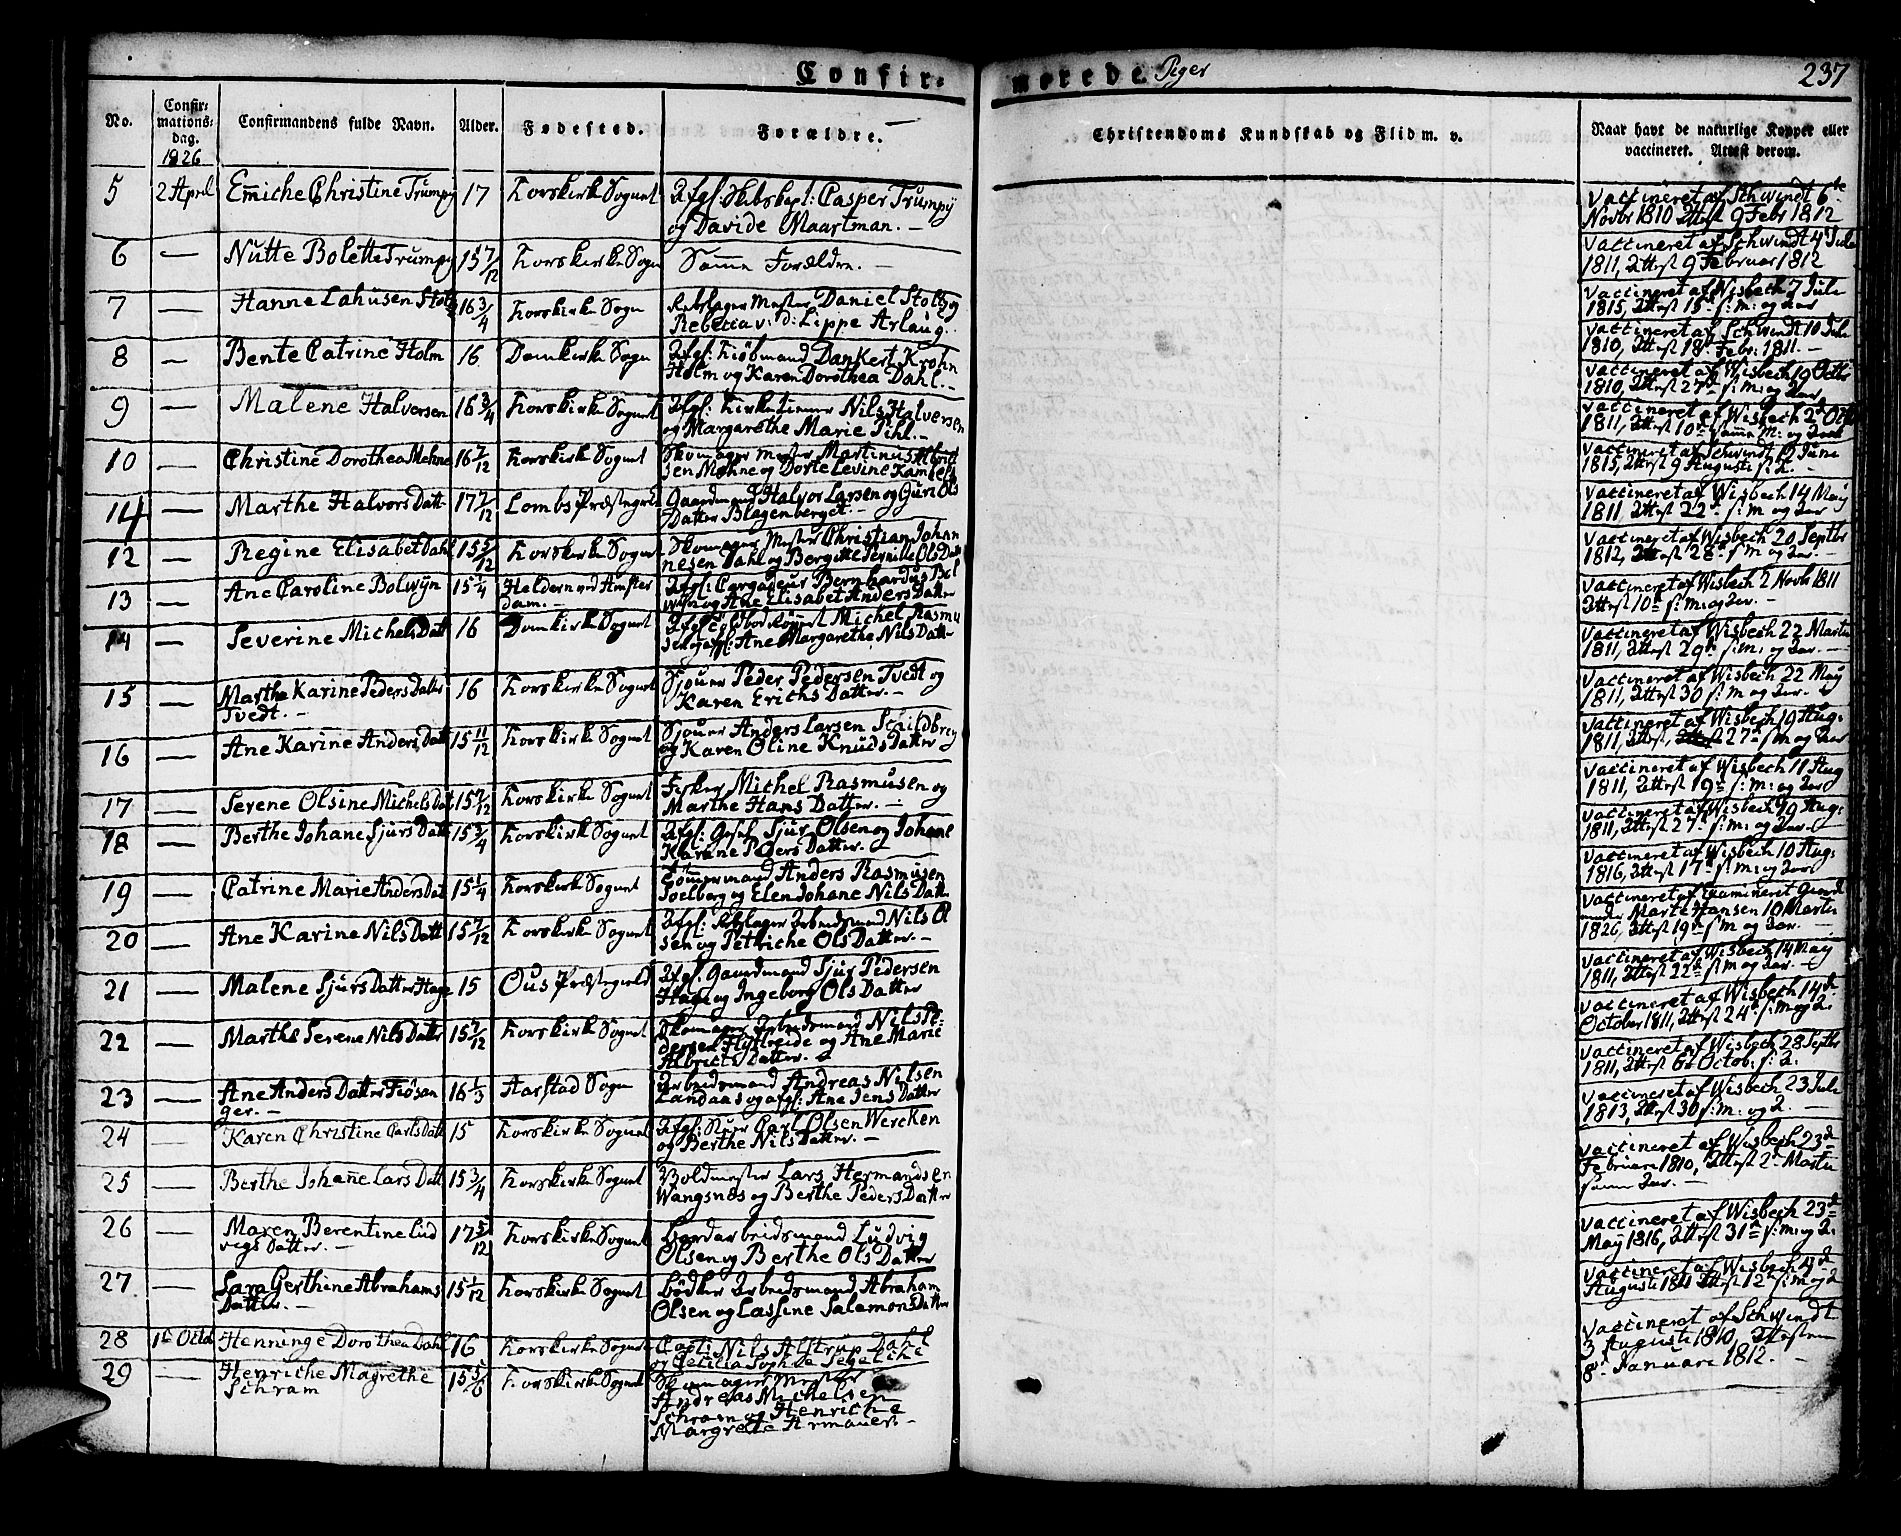 Confir- merede Piger 237
No. Confir- mations- dag. 1826 Confirmandens fulde Navn. Alder. Fødested. Forældre. Christendoms Kundskab og Flid m. v. Naar havt de naturlige Kopper eller vaccineret. Attest derom.
5 2 April Emiche Christine Trumpy 17 Korskirke Sognet Afg: Skibskapt: Casper Trumpÿ
og Davide Maartman. —
Vaccineret af Schwindt 6te
Novbr 1810 Attest 9 Febr 1812
6 — Nutte Bolette Trumpy 15 7/12 Korskirke Sogn Samme Forældre. —
Vaccineret af Schwindt 4 Juli
1811, Attest 9 Februar 1812
7 — Hanne Lahusen Stoltz 16 3/4 Korskirke Sogn Rebslager Mester Daniel Stoltz og
Rebecca v: d: Lippe Arlaug.
Vaccineret af Wisbech 7 Juli
1815, Attest 15de s: M: og Aar
8 — Bente Catrine Holm 16 Domkirke Sogn Afg: Kiöbmand Dankert Krohn
Holm og Karen Dorothea Dahl. —
Vaccineret af Schwindt 10 Juli
1810, Attest 18de Febr: 1811. —
9 — Malene Halversen 16 3/4 Korskirke Sognet Afg: Kirketiener Nils Halversen
og Margarethe Marie Pihl. —
Vaccineret af Wisbech 19 Octbr
1810, Attest 27de s: M: og Aar
10 — Christine Dorothea Mehne 16 7/12 Korskirke Sognet Skomager Mester Martinus Albrigt
sen Mehne og Dorte Levine
Vaccineret af Wisbech 2d Octb
1811, Attest 10de samme M: og Aar
14 — Marthe Halvors Datt 17 7/12 Lombs Præstegield Gaardmand Halvor Larsen og Guri Ols
Datter Blagenberget. —
Vaccineret af Schwindt 12 Juni
1815, Attest 9 Augusti s: A. —
12 — Regine Elisabet Dahl 15 5/12 Korskirke Sognet Skomager Mester Christian Johan
nesen Dahl og Bergitte Pernille Ols Datt
Vaccineret af Wisbech 14 May
1811, Attest 22de s: M og Aar
13 — Ane Caroline Bolwÿn 15 1/4 Heldern ved Amster
dam. — Afg: Cargadeur Bernhardus Bol
wÿn og Ane Elisabet Anders Datter
Vaccineret af Wisbech 20 Septbr
1812, Attest 28de s: M og Aar. —
14 — Severine Michels Datt 16 Domkirke Sognet Michel Rasmu
sen og afg: Ane Margarethe Nils Datt
Vaccineret af Wisbech 2 Novbr 1811
Attest 10de s: M: og Aar. —
15 — Marthe Karine Peders Datter
Tvedt. — 16 Korskirke Sognet Sjouer Peder Pedersen Tvedt og
Karen Erichs Datter. —
Vaccineret af Wisbech 22 Martii
1811, Attest 29de s: M: og Aar. —
16 — Ane Karine Anders Datt 15 11/12 Korskirke Sognet Sjouer Anders Larsen Schildbrey
og Karen Oline Knuds Datter
Vaccineret af Wisbech 22 May
1811, Attest 30 s: M og Aar. —
17 — Serene Olsine Michels Datt 15 7/12 Korskirke Sognet Fisker Michel Rasmusen og
Marthe Hans Datter. —
Vaccineret af Wisbech 19 Aug:
1811, Attest, 27de s: M og Aar
18 — Berthe Johane Sjurs Datt 15 3/4 Korskirke Sognet Afg: Gesel Sjur Olsen og Johane
Karine Peders Datter. —
Vaccineret af Wisbech 11 Aug
1811, Attest 19de s: M: og Aar
19 — Catrine Marie Anders Dat 15 1/4 Korskirke Sognet Tömmermand Anders Rasmusen
Soelberg og Elen Johane Nils Datt
Vaccineret af Wisbech 19 Aug:
1811, Attest 27de s: M: og Aar. —
20 — Ane Karine Nils Datt 15 7/12 Korskirke Sognet Afg: Arbeidsmand Nils Ol
sen og Petriche Ols Datter. —
Vaccineret af Wisbech 10 Aug:
1816, Attest 17de s: M: og Aar
21 — Malene Sjurs Datter Hage 15 Ous Præstegield Afg: Gaardmand Sjur Pedersen
Hage og Ingeborg Ols Datter
Vaccineret af Examineret Giord
moder Marte Hansen 10 Martii
1826, Attest 19de s: M og Aar. —
22 — Marthe Serene Nils Datter 15 7/12 Korskirke Sognet Skomager Arbeidsmand Nils Pe-
dersen Flyttreide og Ane Marie
Albrigts Datter. —
Vaccineret af Wisbech 14 May
1811, Attest 22de s: M og Aar. —
23 — Ane Anders Datter Fiösan
ger. — 16 1/3 Aarstad Sogn Arbeidsmand Andreas Nilsen
Landaas og afg: Ane Jens Datter
Vaccineret af Wisbech 14de
October 1811, Attest 24de s: M: og A:
24 — Karen Christine Carls Datt 15 Korskirke Sognet Afg: Carl Olsen Wercken
og Berthe Nils Datter. —
Vaccineret af Wisbech 28 Septbr
1811, Attest 6te Octob: s: A:
25 — Berthe Johane Lars Datt 15 3/4 Korskirke Sognet Voldmester Lars Hermandsen
Wangsnes og Berthe Peders Datter
Vaccineret af Wisbech 23 Juli
1813, Attest 30 s: M: og A. —
26 — Maren Berentine Lud
vigs Datter. — 17 5/12 Korskirke Sognet Arbeidsmand Ludvig
Olsen og Berthe Ols Datter
Vaccineret af Wisbech 23de
Februari 1810, Attest 2de Martii
samme Aar. —
27. — Sara Gerthine Abrahams
Datter. — 15 1/12 Korskirke Sognet Bödker Arbeidsmand Abraham
Olsen og Lassine Salamons Datter
Vaccineret af Wisbech 23de
May 1816, Attest 31de s: M: og A:
28 1te Octb Henninge Dorothea Dahl 16 Korskirke Sognet Capt: Nils Alstrup Dahl
og Cecilia Sophie Segelcke
Vaccineret af Wisbech 4de
Augusti 1811 Attest 12te s: M og A
29 Henriche Magrethe
Schram 15 5/6 Korskirke Sognet Skomager Mester
Andreas Michelsen
Schram og Henriche
Margrete Armauer. —
Vaccineret af Schwindt
3 Augusti 1810, Attesten
8de Januari 1812. —